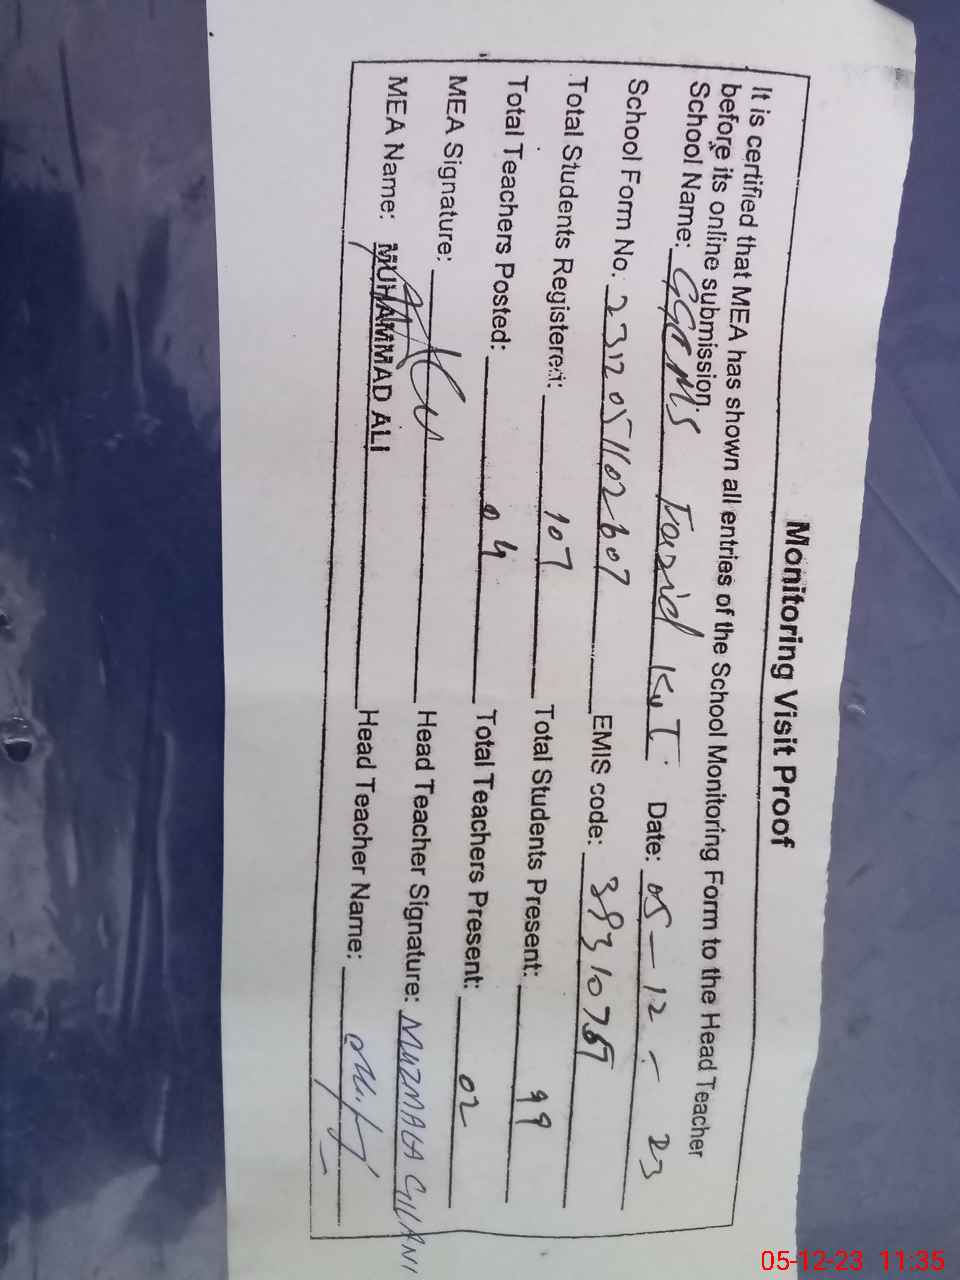 Monitoring Visit Proof
It is certified that MEA has shown all entries of the School Monitoring Form to the Head Teacher
before its online submission.
School Name: GGCMS Farid Kot Date: 05-12-23
School Form No. 2312051102607 EMIS code:
Total Students Registered: 107 Total Students Present: 99
Total Teachers Posted: 04 Total Teachers Present: 02
MEA Signature: Head Teacher Signature: MUZMALA GILANI
MEA Name: MUHAMMAD ALI Head Teacher Name:
05-12-23 11:35